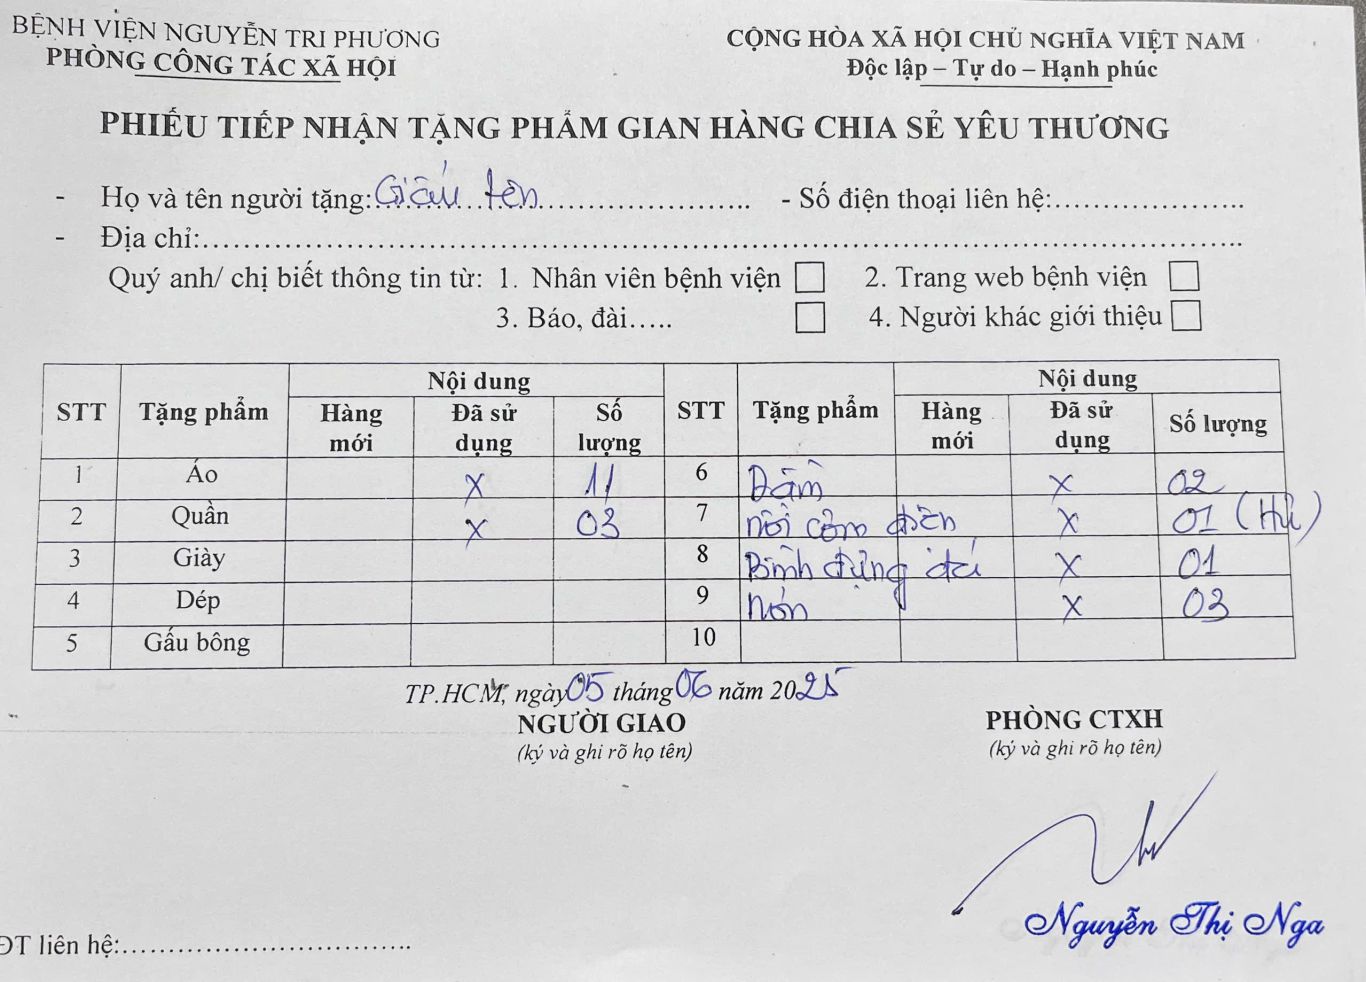 BỆNH VIỆN NGUYỄN TRI PHƯƠNG
PHÒNG CÔNG TÁC XÃ HỘI
CỘNG HÒA XÃ HỘI CHỦ NGHĨA VIỆT NAM
Độc lập – Tự do – Hạnh phúc
PHIẾU TIẾP NHẬN TẶNG PHẨM GIAN HÀNG CHIA SẺ YÊU THƯƠNG
- Họ và tên người tặng: Giấu tên - Số điện thoại liên hệ:....................
- Địa chỉ:....................
Quý anh/ chị biết thông tin từ: 1. Nhân viên bệnh viện ☐ 2. Trang web bệnh viện ☐
3. Báo, đài….. ☐ 4. Người khác giới thiệu ☐
STT Tặng phẩm Nội dung STT Tặng phẩm Nội dung
Hàng mới Đã sử dụng Số lượng Hàng mới Đã sử dụng Số lượng
1 Áo X 11 6 Đầm X 02
2 Quần X 03 7 nồi cơm điện X 01 (Hư)
3 Giày 8 Bình đựng đá X 01
4 Dép 9 nón X 03
5 Gấu bông 10
TP.HCM, ngày 05 tháng 06 năm 2025
NGƯỜI GIAO PHÒNG CTXH
(ký và ghi rõ họ tên) (ký và ghi rõ họ tên)
Nguyễn Thị Nga
ĐT liên hệ:....................